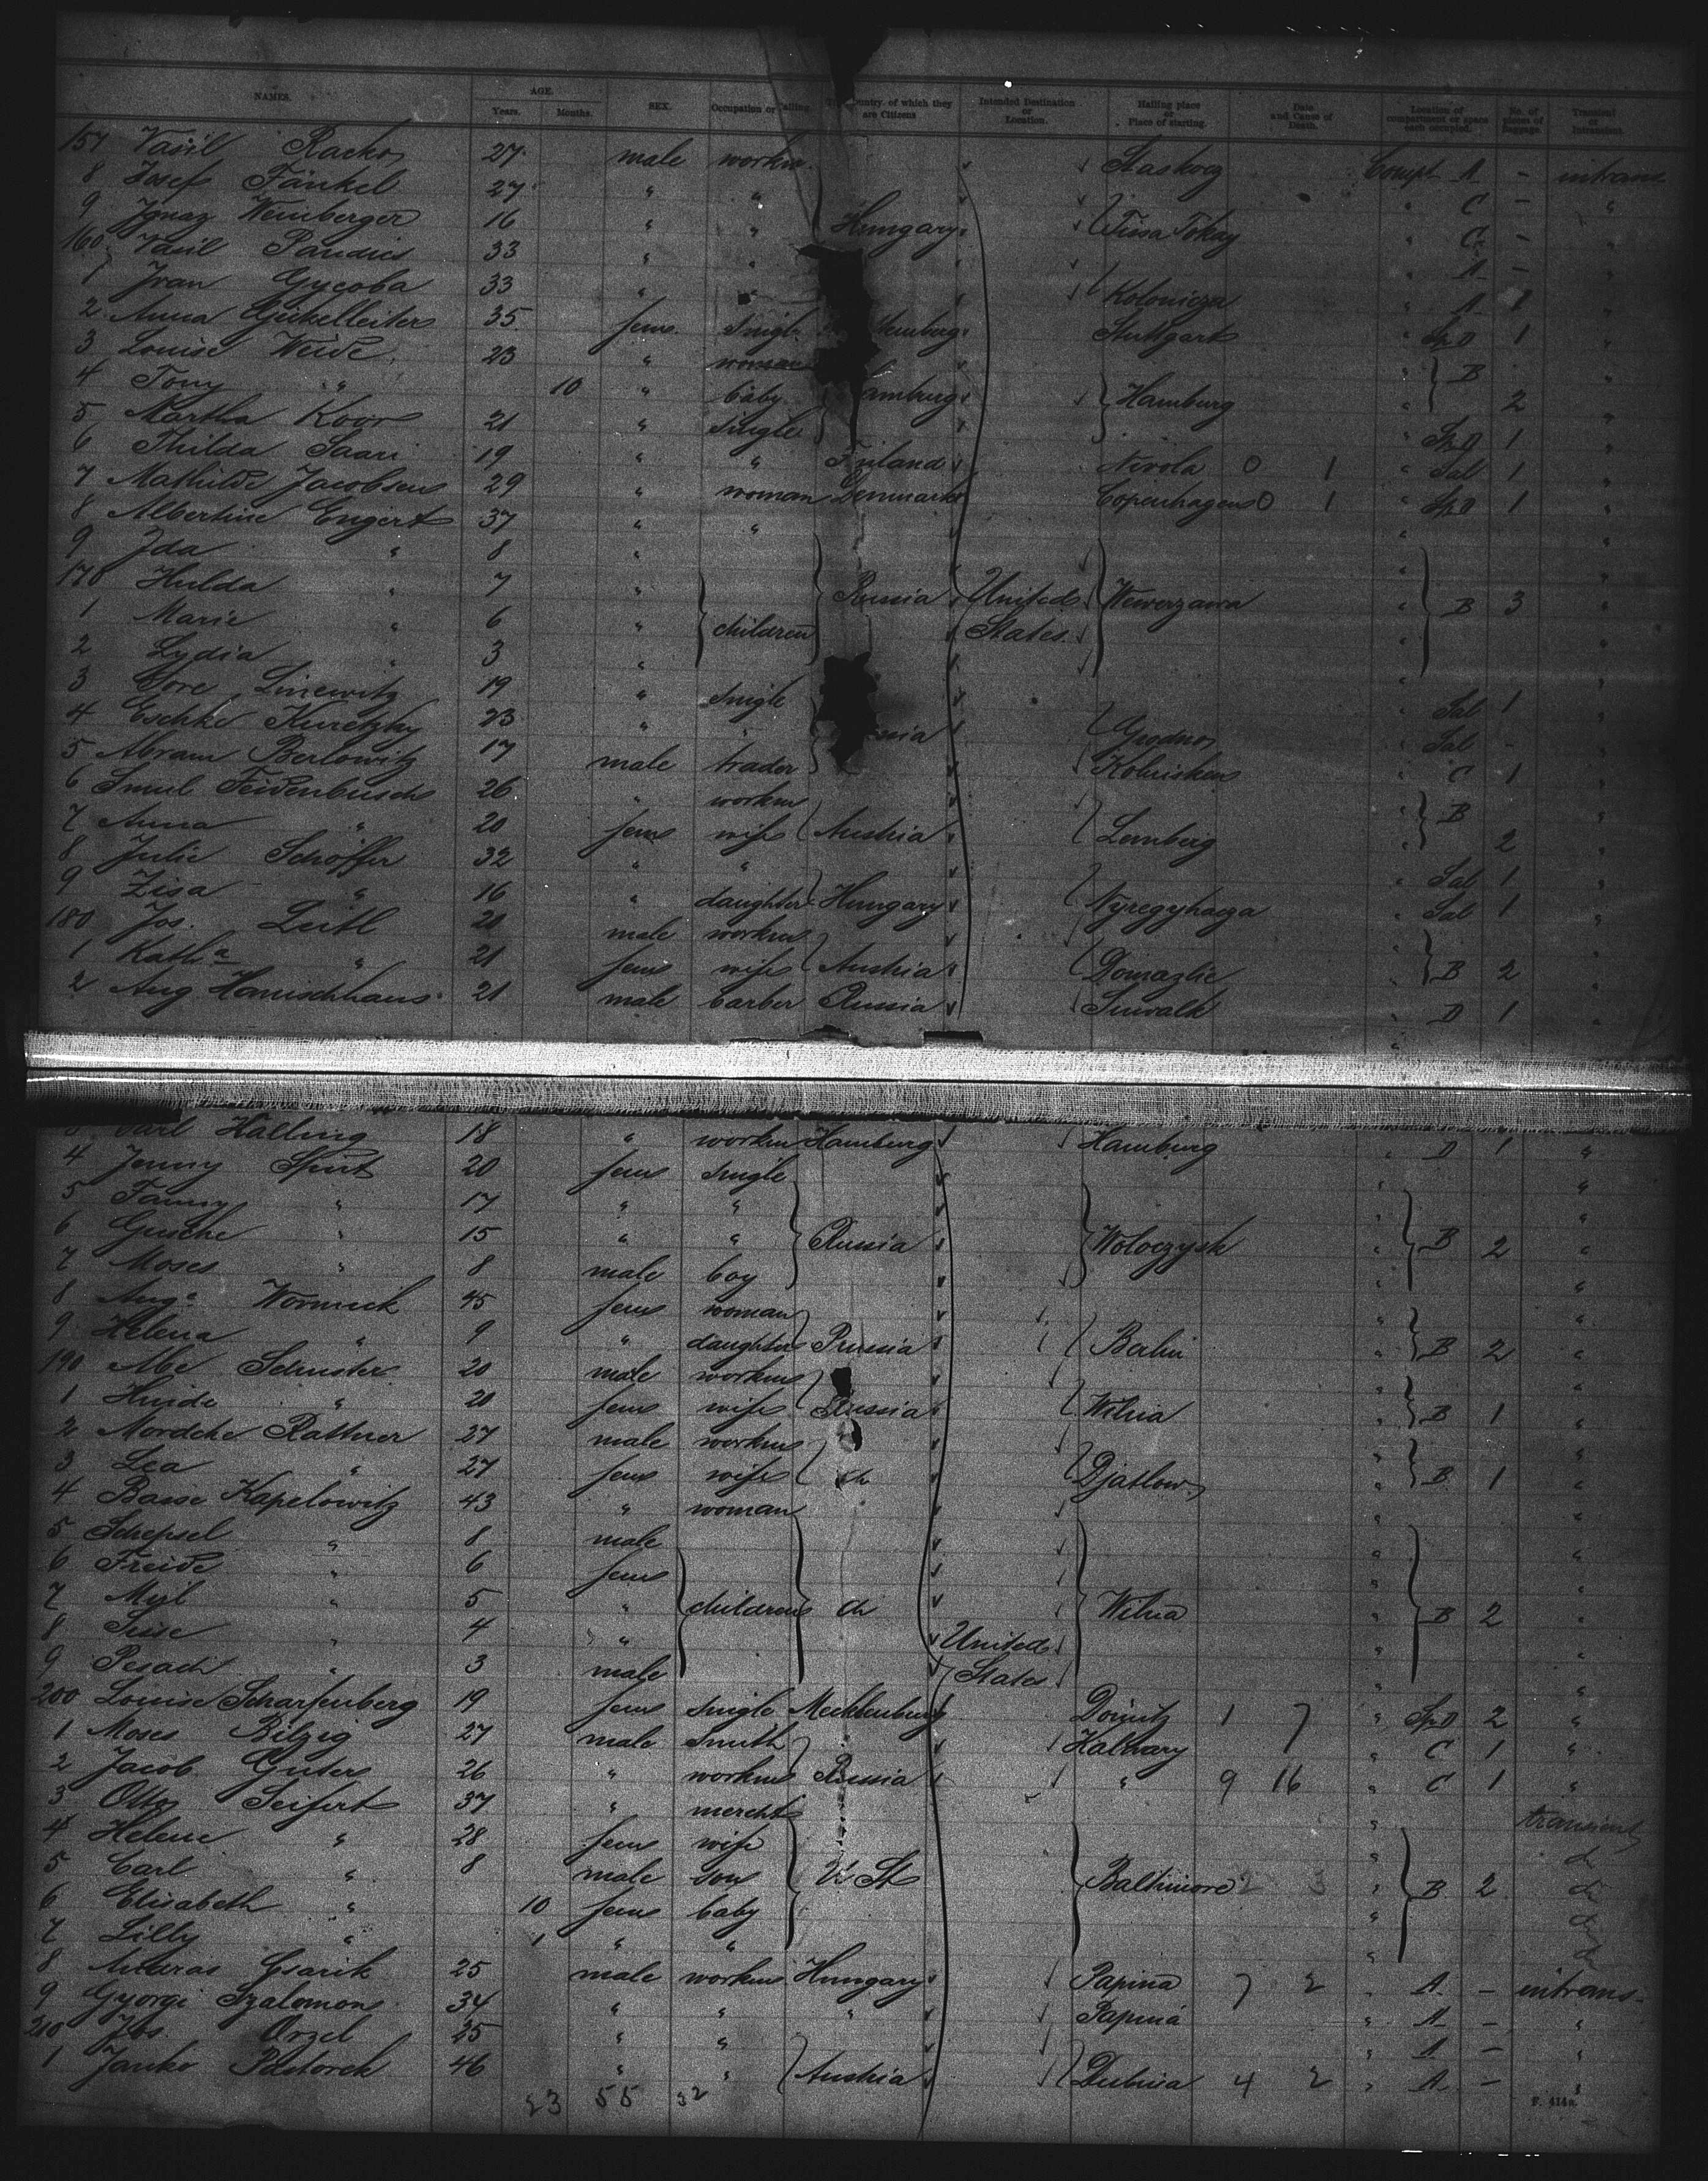 NAMES. AGE. Years. Months. SEX. Occupation or Calling. The Country of which they are Citizens Intended Destination or Location. Hailing place or Place of starting. Date and Cause of Death. Location of compartment or space each occupied. No. of pieces of Baggage. Transient or Intransient.
157 Vasil Racko 27 male worker Staskocz Compt A - intrans
8 Josef Fänkel 27 " " " C - "
9 Ignaz Weinberger 16 " " Hungary Tissa Tokay " C - "
160 Vasil Pandics 33 " " " A - "
1 Ivan Gycoba 33 " " Kolonicza " A 1 "
2 Anna Geikelleiter 35 fem. single Stuttgart " Sp D 1 "
3 Louise Weide 23 " woman " B "
4 Tony " 10 " baby Hamburg Hamburg " 2 "
5 Martha Koor 21 " single " Sp D 1 "
6 Thilda Saari 19 " " Finland Nivola 0 1 " Sal 1 "
7 Mathilde Jacobsen 29 " woman Denmark Copenhagen 0 1 " Sp D 1 "
8 Albertine Engert 37 " " " "
9 Ida " 8 " " "
170 Hulda " 7 " Russia United Wewerzawa " B 3 "
1 Marie " 6 " children States " "
2 Lydia " 3 " " "
3 Sore Linewitz 19 " single " Sal 1 "
4 Eschke Kuretzky 23 " " Grodno " Sal - "
5 Abram Berlowitz 17 male trader Kolnischen " C 1 "
6 Smul Feidenbusch 26 " worker " B "
7 Anna " 20 fem wife Austria Lemberg " 2 "
8 Julie Schöffer 32 " " " Sal 1 "
9 Zisa " 16 " daughter Hungary Nyregyhaza " Sal 1 "
180 Jos. Leitl 21 male worker "
1 Kath.a " 21 fem wife Austria Domazlic " B 2 "
2 Aug Hanischhaus 21 male barber Russia Suwalk " D 1 "
Carl Halling 18 " worker Hamburg Hamburg " D 1 "
4 Jenny Spirt 20 fem single " "
5 Fanny " 17 " " " "
6 Gusche " 15 " " Russia Woloczysk " B 2 "
7 Moses " 8 male boy " "
8 Aug.e Wormick 45 fem woman " "
9 Helena " 9 " daughter Prussia Berlin " B 2 "
190 Abe Schuster 20 male worker " "
1 " 20 fem wife Russia Wilna " B 1 "
2 Mordche Rathner 27 male worker " "
3 Lea " 27 fem wife do Djatlow " B 1 "
4 Basse Kapelowitz 43 " woman " "
5 Schepsel " 8 male " "
6 Freide " 6 fem "
7 " 5 " children do Wilna " B 2 "
8 " 4 " United " "
9 Pesach " 3 male States "
200 Louise Scharfenberg 19 fem single Mecklenburg Dömitz 1 7 " Sp D 2 "
1 Moses Bilzig 27 male smith Kalwary " C 1 "
2 Jacob Guter 26 " worker Russia " 9 16 " C 1 "
3 Otto Seifert 37 " mercht " transient
4 Helene " 28 fem wife " do
5 Carl " 8 male son U St Baltimore 2 3 " B 2 do
6 Elisabeth " 10 fem baby " do
7 Lilly " 1 " " " do
8 Csarik 25 male worker Hungary Papina 7 2 " A - intrans
9 Gyorgi Szalomon 34 " " " Papina " A - "
210 Jos. Orzel 25 " " " A - "
1 Janko Pastorek 46 " " Austria Dubina 4 2 " A - "
23 55 32
F. 414a.